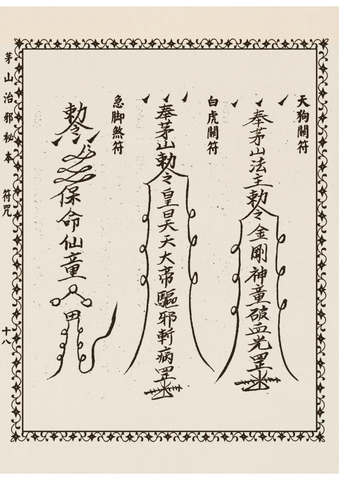 天狗關符
奉茅山法主勅令金剛神童破血光罡
白虎關符
奉茅山勅令皇旦天天大帝驅邪斬病罡
急脚煞符
勅令
保命仙童
茅山治邪秘本 符咒 十八